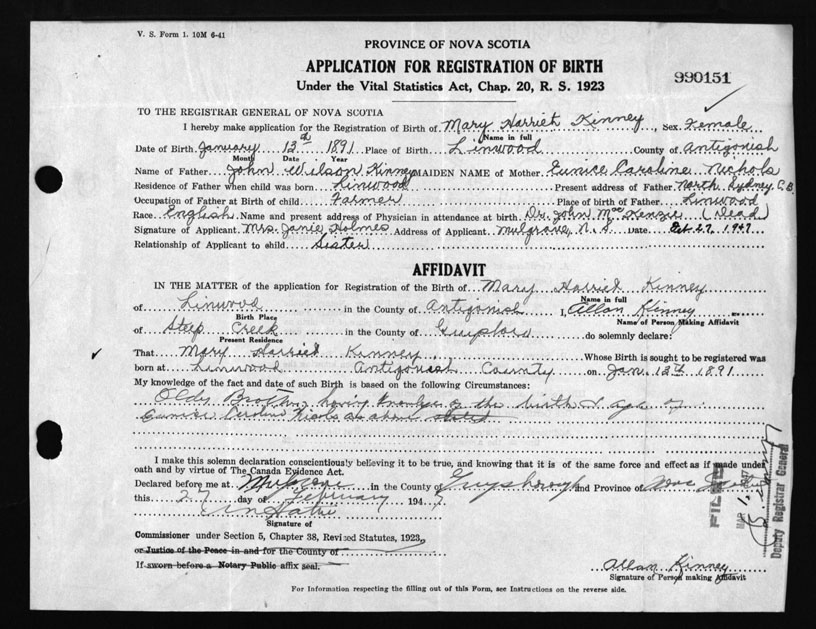 V. S. Form 1. 10M 6-41
PROVINCE OF NOVA SCOTIA
APPLICATION FOR REGISTRATION OF BIRTH
Under the Vital Statistics Act, Chap. 20, R. S. 1923
990151
TO THE REGISTRAR GENERAL OF NOVA SCOTIA
I hereby make application for the Registration of Birth of Mary Harriet Kinney, Sex Female
Name in full
Date of Birth January 13th 1891 Place of Birth Linwood County of Antigonish
Month Date Year
Name of Father John Wilson Kinney MAIDEN NAME of Mother Eunice Caroline Nichols
Residence of Father when child was born Linwood Present address of Father North Sydney C.B.
Occupation of Father at Birth of child Farmer Place of birth of Father Linwood
Race English Name and present address of Physician in attendance at birth Dr. John McKenzie (Dead)
Signature of Applicant Mrs. Janie Holmes Address of Applicant Mulgrave, N.S. Date Feb. 27, 1947
Relationship of Applicant to child Sister
AFFIDAVIT
IN THE MATTER of the application for Registration of the Birth of Mary Harriet Kinney
Name in full
of Linwood in the County of Antigonish I, Allan Kinney
Birth Place Name of Person Making Affidavit
of Steep Creek in the County of do solemnly declare:
Present Residence
That Mary Harriet Kinney, Whose Birth is sought to be registered was
born at Linwood Antigonish County on Jan. 13th 1891
My knowledge of the fact and date of such Birth is based on the following Circumstances:
Older Brother having knowledge of the birth & age of
Eunice Caroline as above stated
I make this solemn declaration conscientiously believing it to be true, and knowing that it is of the same force and effect as if made under
oath and by virtue of The Canada Evidence Act.
Declared before me at Mulgrave in the County of Guysborough and Province of Nova Scotia
this 27 day of February 1947
Signature of
Commissioner under Section 5, Chapter 38, Revised Statutes, 1923,
or Justice of the Peace in and for the County of
If sworn before a Notary Public affix seal.
Allan Kinney
Signature of Person making Affidavit
FILED
Deputy Registrar General
For Information respecting the filling out of this Form, see Instructions on the reverse side.